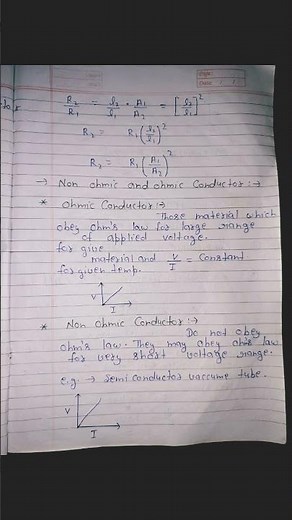 R₂/R₁ = l₂/l₁ × A₁/A₂ = [l₂/l₁]²
R₂ = R₁(l₂/l₁)²
R₂ = R₁(A₁/A₂)²
→ Non ohmic and ohmic Conductor :→
* Ohmic Conductor :→
Those material which
obey Ohm's law for large range
of applied voltage.
for give
material and V/I = Constant
for given temp.
V
I
* Non Ohmic Conductor :→
Do not obey
ohm's law. They may obey ohm's law
for very short voltage range.
e.g. → Semi conductor vaccume tube.
V
I